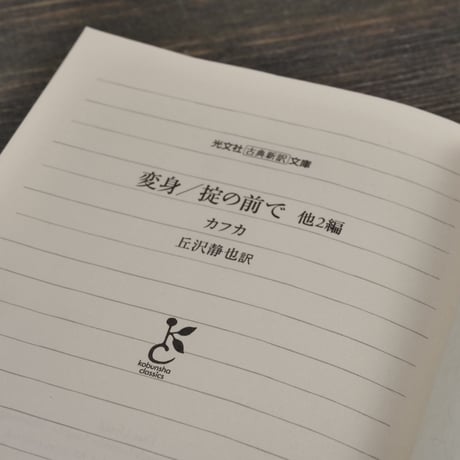 光文社古典新訳文庫
変身/掟の前で 他2編
カフカ
丘沢静也訳
kobunsha
classics